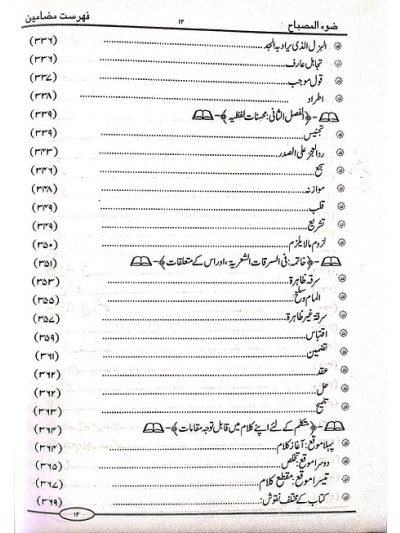 ضوء المصباح ۱۲ فہرست مضامین
الہزل الذی یراد بہ الجد (۳۳۶)
تجاہل عارف (۳۳۶)
قول موجب (۳۳۷)
اطراد (۳۳۸)
﴿الفصل الثانی: محسنات لفظیہ﴾ (۳۳۹)
تجنیس (۳۳۹)
رد العجز علی الصدر (۳۴۳)
سجع (۳۴۶)
موازنہ (۳۴۸)
قلب (۳۴۹)
تشریع (۳۴۹)
لزوم مالا یلزم (۳۵۰)
﴿خاتمہ: فی السرقات الشعریۃ، اور اس کے متعلقات﴾ (۳۵۱)
سرقہ ظاہرۃ (۳۵۳)
المام وسلخ (۳۵۵)
سرقہ غیر ظاہرۃ (۳۵۷)
اقتباس (۳۵۹)
تضمین (۳۶۱)
عقد (۳۶۲)
حل (۳۶۲)
تلمیح (۳۶۳)
﴿متکلم کے لئے اپنے کلام میں قابل توجہ مقامات﴾ (۳۶۴)
پہلا موقع: آغاز کلام (۳۶۴)
دوسرا موقع: تخلص (۳۶۵)
تیسرا موقع: مقطع کلام (۳۶۷)
کتاب کے مختلف نقوش: (۳۶۹)
۱۲